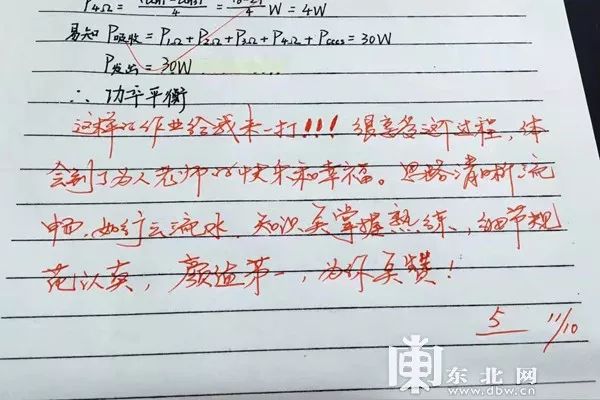 P4Ω = 4 = 4 W = 4W
易知 P吸收 = P1Ω + P2Ω + P3Ω + P4Ω + Pcccs = 30W
P发出 = 30W
∴ 功率平衡
这样的作业给我来一打!!! 很享受这个过程，体
会到了为人老师的快乐和幸福。思路清晰流
畅，如行云流水，知识点掌握熟练，细节规
范以真，颜值第一，为你点赞！
5 11/10
东北网
www.dbw.cn